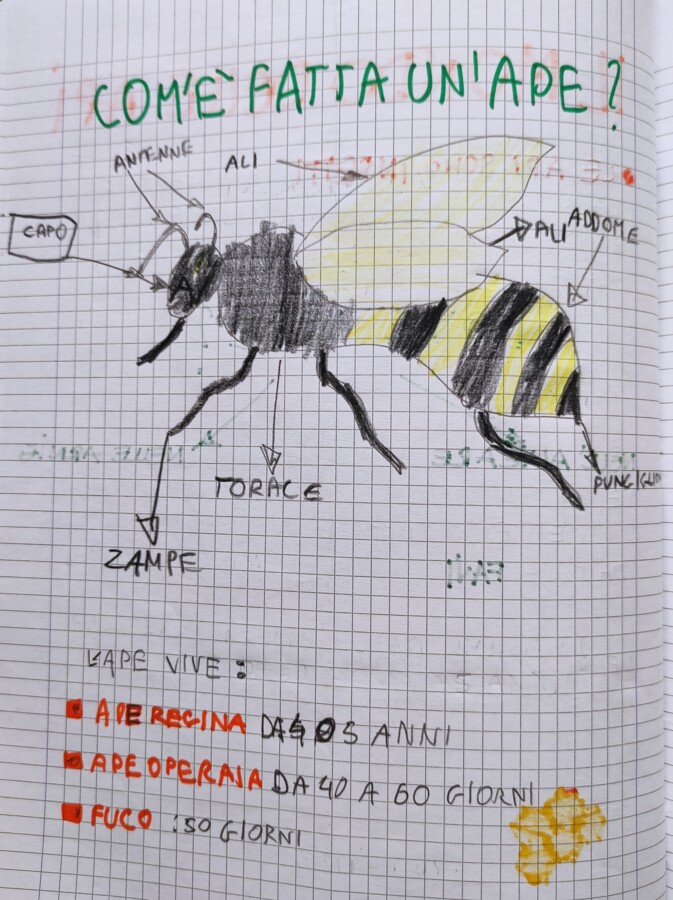 COM'È FATTA UN'APE?
ANTENNE
ALI
CAPO
ALI
ADDOME
TORACE
ZAMPE
L'APE VIVE:
APE REGINA DA 4 O 5 ANNI
APE OPERAIA DA 40 A 60 GIORNI
FUCO : 50 GIORNI